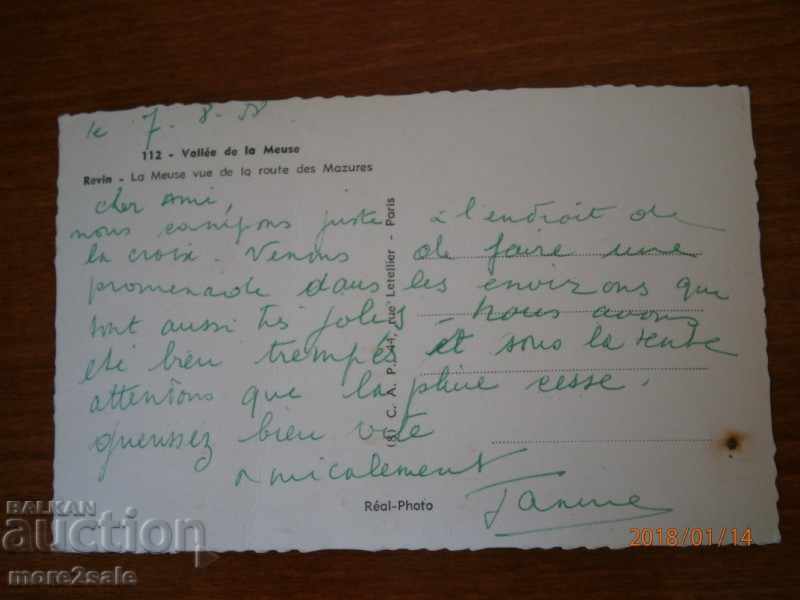 le 7-8-58
112 - Vallée de la Meuse
Revin - La Meuse vue de la route des Mazures
cher ami,
nous campons juste à l'endroit de
la croix. Venons de faire une
promenade dans les environs que
sont aussi très jolies. Nous avons
été bien trempés et sous la tente
attentons que la pluie cesse.
guerissez bien vite
amicalement
Janine
(8) C. A. P. 44, rue Letellier - Paris
Réal-Photo
2018/01/14
BALKAN
auction
more2sale